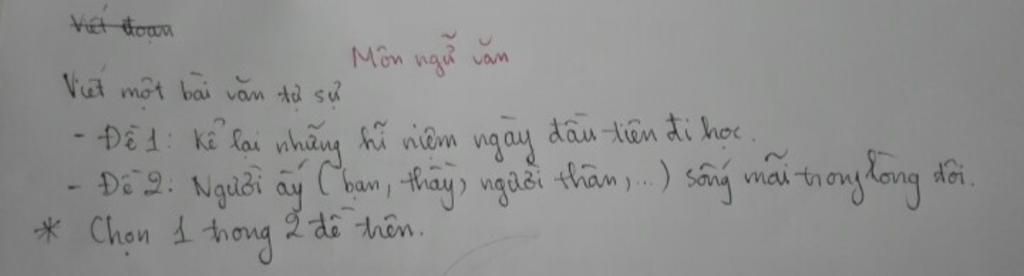 Viết đoạn
Môn ngữ văn
Viết một bài văn tự sự
- Đề 1: Kể lại những kĩ niệm ngày đầu tiên đi học.
- Đề 2: Người ấy (bạn, thầy, người thân,...) sống mãi trong lòng tôi.
* Chọn 1 trong 2 đề trên.